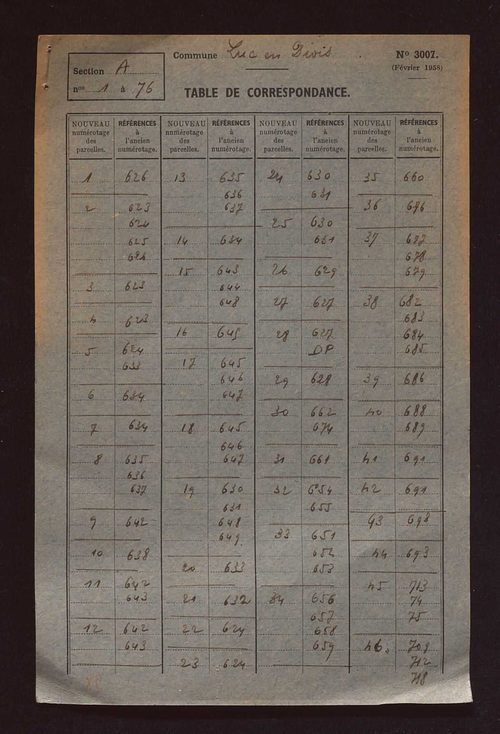 Section A
nos 1 à 76
Commune Luc en Diois
No 3007.
(Février 1958)
TABLE DE CORRESPONDANCE.
NOUVEAU numérotage des parcelles. RÉFÉRENCES à l'ancien numérotage. NOUVEAU numérotage des parcelles. RÉFÉRENCES à l'ancien numérotage. NOUVEAU numérotage des parcelles. RÉFÉRENCES à l'ancien numérotage. NOUVEAU numérotage des parcelles. RÉFÉRENCES à l'ancien numérotage.
1 626
2 623
624
625
626
3 623
4 623
5 624
633
6 634
7 634
8 635
636
637
9 642
10 638
11 642
643
12 642
643
13 635
636
637
14 634
15 643
644
648
16 645
17 645
646
647
18 645
646
647
19 630
631
648
649
20 633
21 632
22 624
23 624
24 630
631
25 630
631
26 629
27 627
28 627
DP
29 628
30 662
674
31 661
32 654
655
33 651
652
653
34 656
657
658
659
35 660
36 696
37 687
678
679
38 682
683
684
685
39 686
40 688
689
41 691
42 691
43 693
44 693
45 713
74
75
46 709
712
718